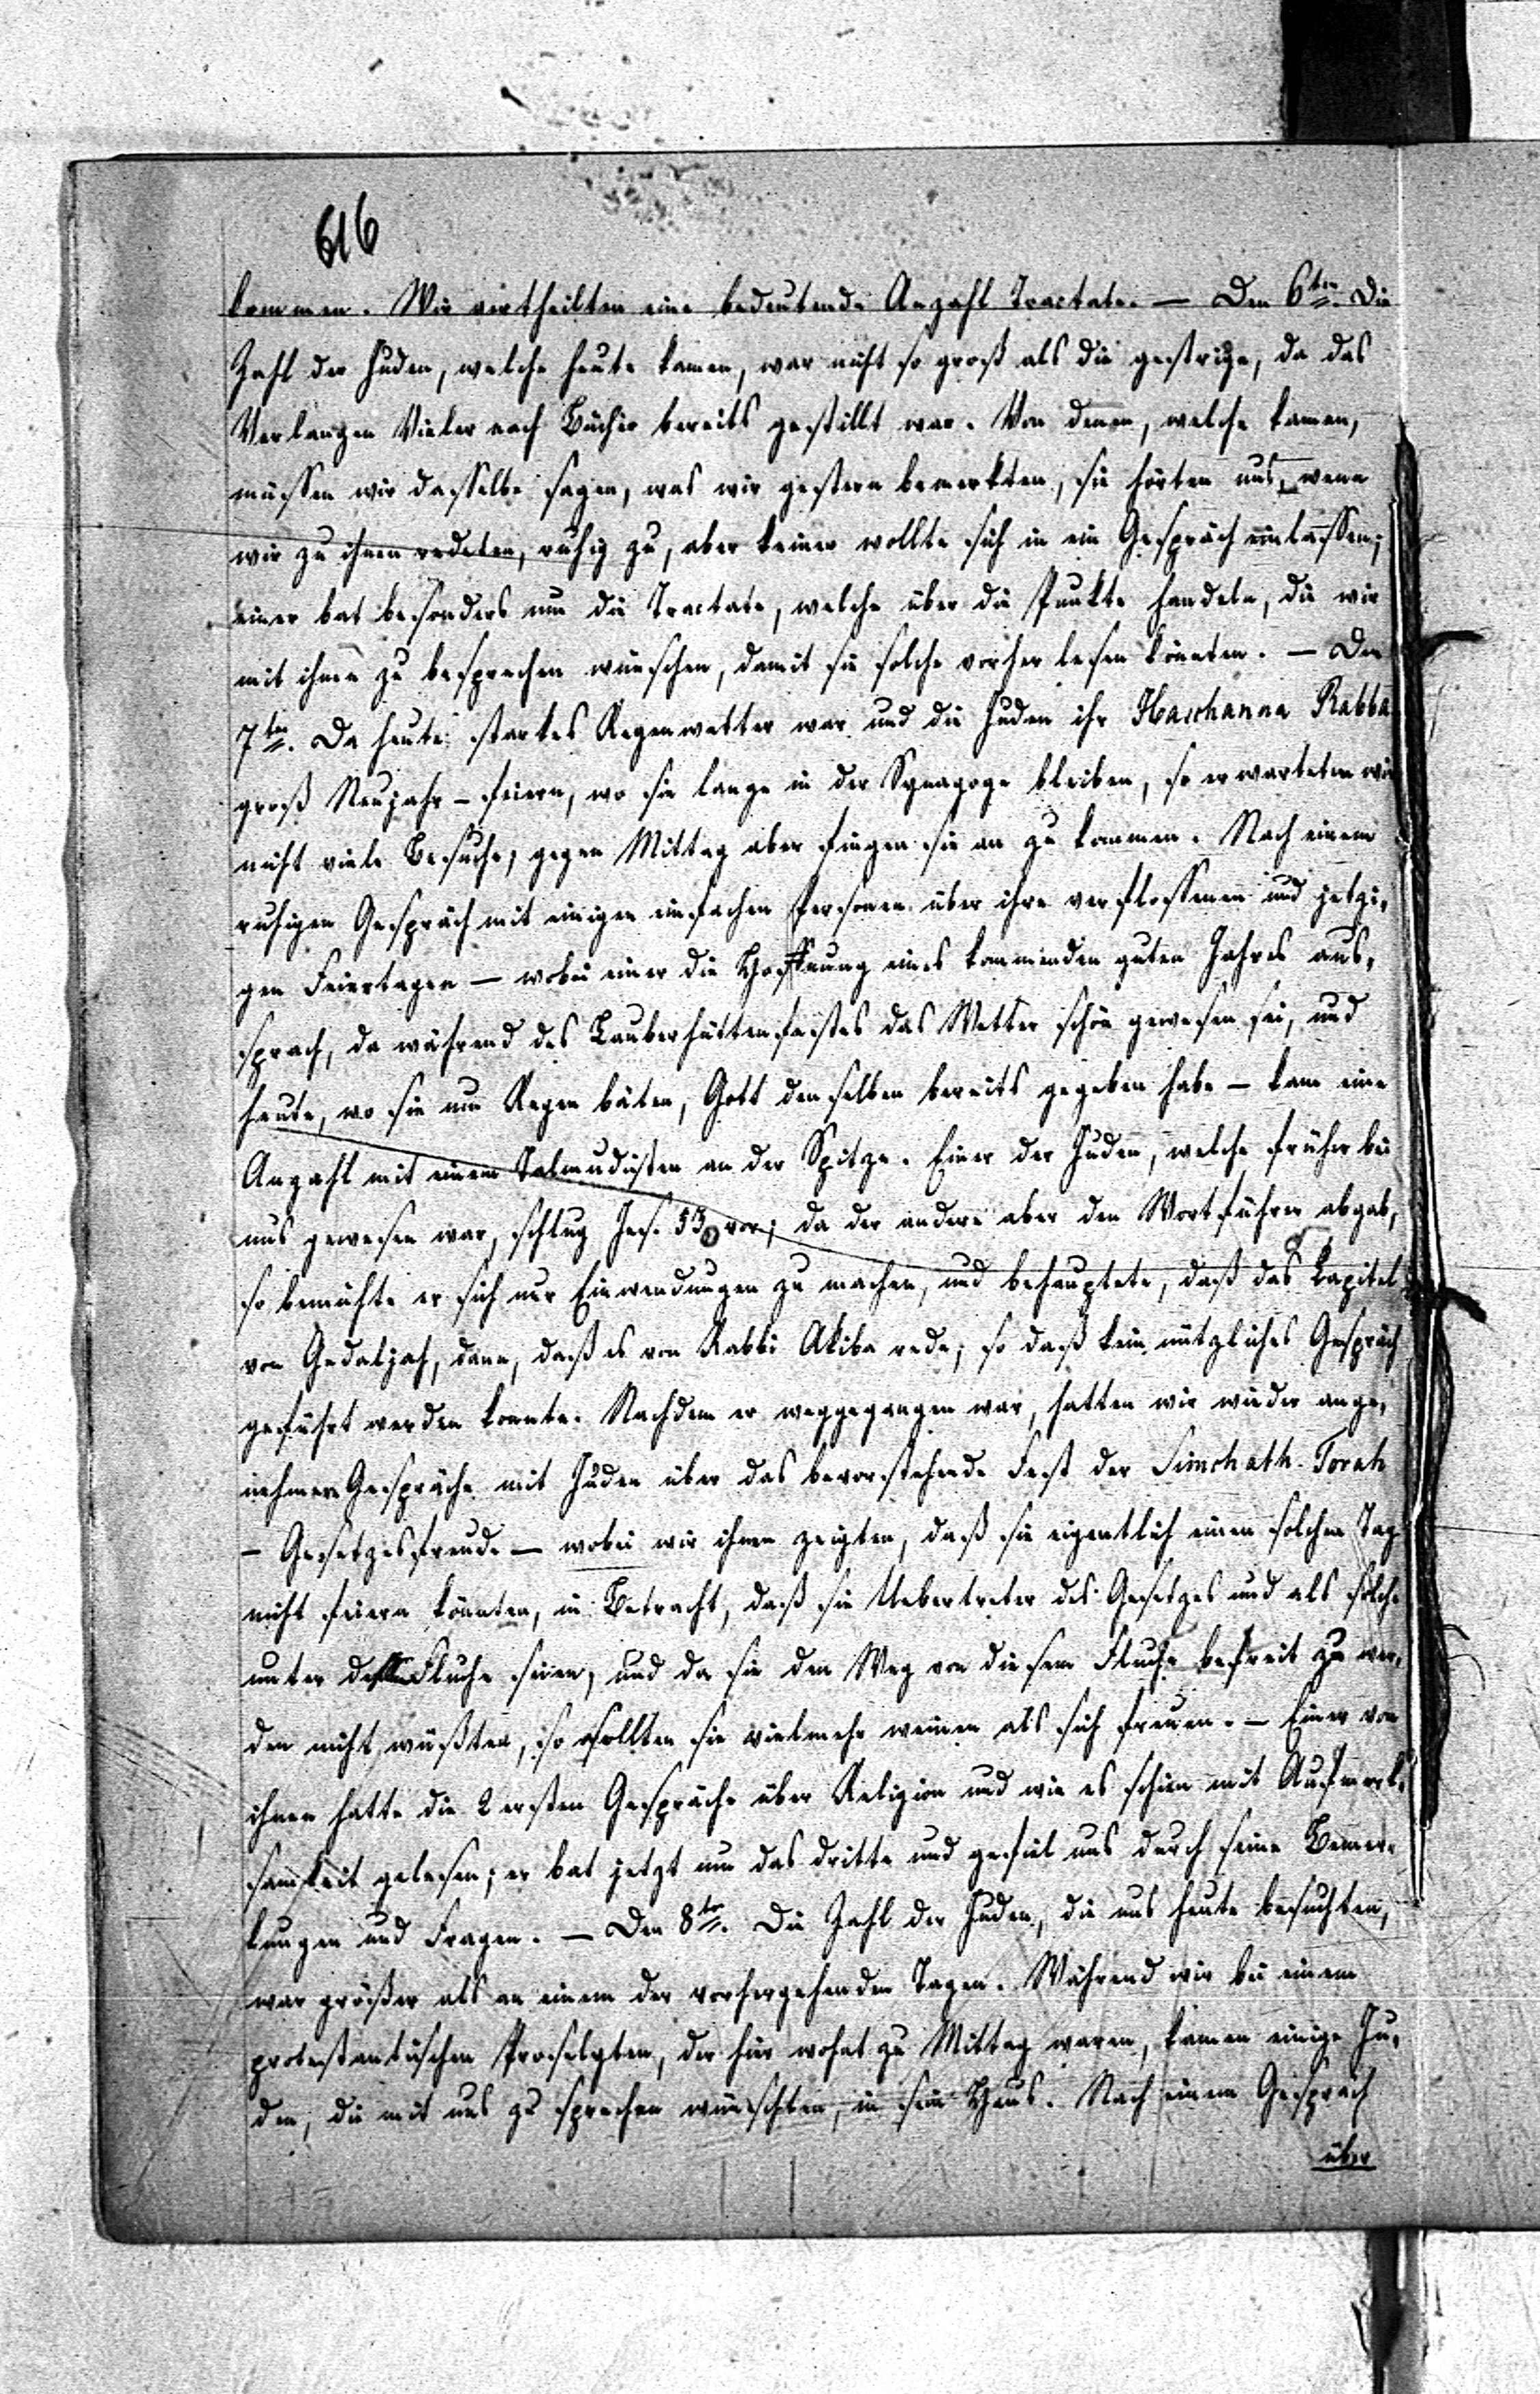 616
kommen. Wir vertheilten eine bedeutende Anzahl Tractate. — Den 6ten. Die
Zahl der Juden, welche heute kamen, war nicht so groß als die gestrige, da das
Verlangen Vieler nach Bücher bereits gestillt war. Von denen, welche kamen,
müssen wir dasselbe sagen, was wir gestern bemerkten, sie hörten uns, wenn
wir zu ihnen redeten, ruhig zu, aber keiner wollte sich in ein Gespräch einlassen;
einer bat besonders um die Tractate, welche über die Punkte handeln, die wir
mit ihnen zu besprechen wünschen, damit sie solche vorher lesen könnten. — Den
7ten. Da heute starkes Regenwetter war und die Juden ihr Haschanna Rabba
groß Neujahr - feiern, wo sie lange in der Synagoge bleiben, so erwarteten wir
nicht viele Besuche, gegen Mittag aber fingen sie an zu kommen. Nach einem
ruhigen Gespräch mit einigen einfachen Personen über ihre verflossenen und jetzi-
gen Feiertagen — wobei einer die Hoffnung eines kommenden guten Jahres aus-
sprach, da während des Lauberhüttenfestes das Wetter schön gewesen sei, und
heute, wo sie um Regen bäten, Gott denselben bereits gegeben habe — kam eine
Anzahl mit einem Talmudisten an der Spitze. Einer der Juden, welche früher bei
uns gewesen war, schlug Jes. 53 vor; da der andere aber den Wortführer abgab,
so bemühte er sich nur Einwendungen zu machen, und behauptete, daß das Kapitel
von Gedaljah, dann, daß es von Rabbi Akiba rede, so daß kein nützliches Gespräch
geführt werden konnte. Nachdem er weggegangen war, hatten wir wieder ange-
nehmere Gespräche mit Juden über das bevorstehende Fest der Simchath-Torah
- Gesetzesfreude — wobei wir ihnen zeigten, daß sie eigentlich einen solchen Tag
nicht feiern könnten, in Betracht, daß sie Uebertreter des Gesetzes und als solche
unter dessen Fluche seien, und da sie den Weg von diesem Fluche befreit zu wer-
den nicht wüßten, so sollten sie vielmehr weinen als sich freuen. — Einer von
ihnen hatte die 2 ersten Gespräche über Religion und wie es schien mit Aufmerk-
samkeit gelesen; er bat jetzt um das dritte und gefiel uns durch seine Bemer-
kungen und Fragen. — Den 8ten. Die Zahl der Juden, die uns heute besuchten,
war größer als an einem der vorhergehenden Tagen. Während wir bei einem
protestantischen Proselyten, der hier wohnt zu Mittag waren, kamen einige Ju-
den, die mit uns zu sprechen wünschten, in sein Haus. Nach einem Gespräch
über